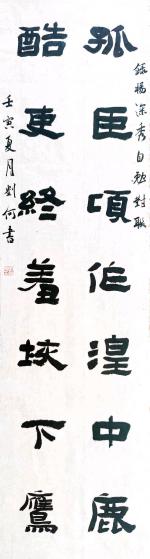 錄楊深秀自勉對聯
孤臣頃作湟中鹿
酷吏終羞垓下鷹
壬寅夏月劉何書